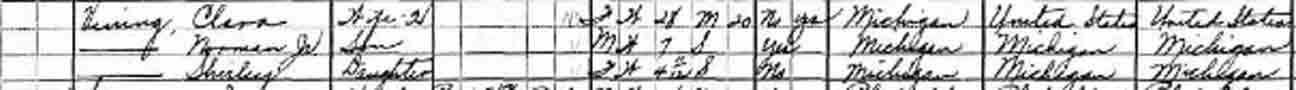 Vining, Clara Wife-2 F W 28 M 20 No yes Michigan United States United States
Norman Jr Son M W 7 S Yes Michigan Michigan Michigan
Shirley Daughter F W 4 S No Michigan Michigan Michigan